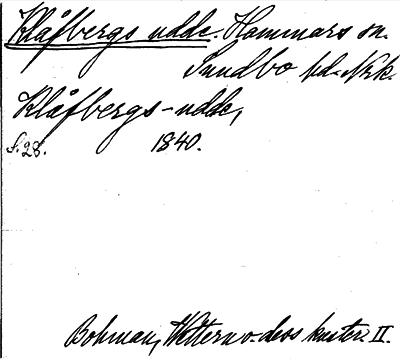 Klåfbergs udde. Hammars sn.
Sundbo hd. Nrk.
Klåfbergs-udde,
S. 28. 1840.
Bohman, Wettern o. dess kuster. II.